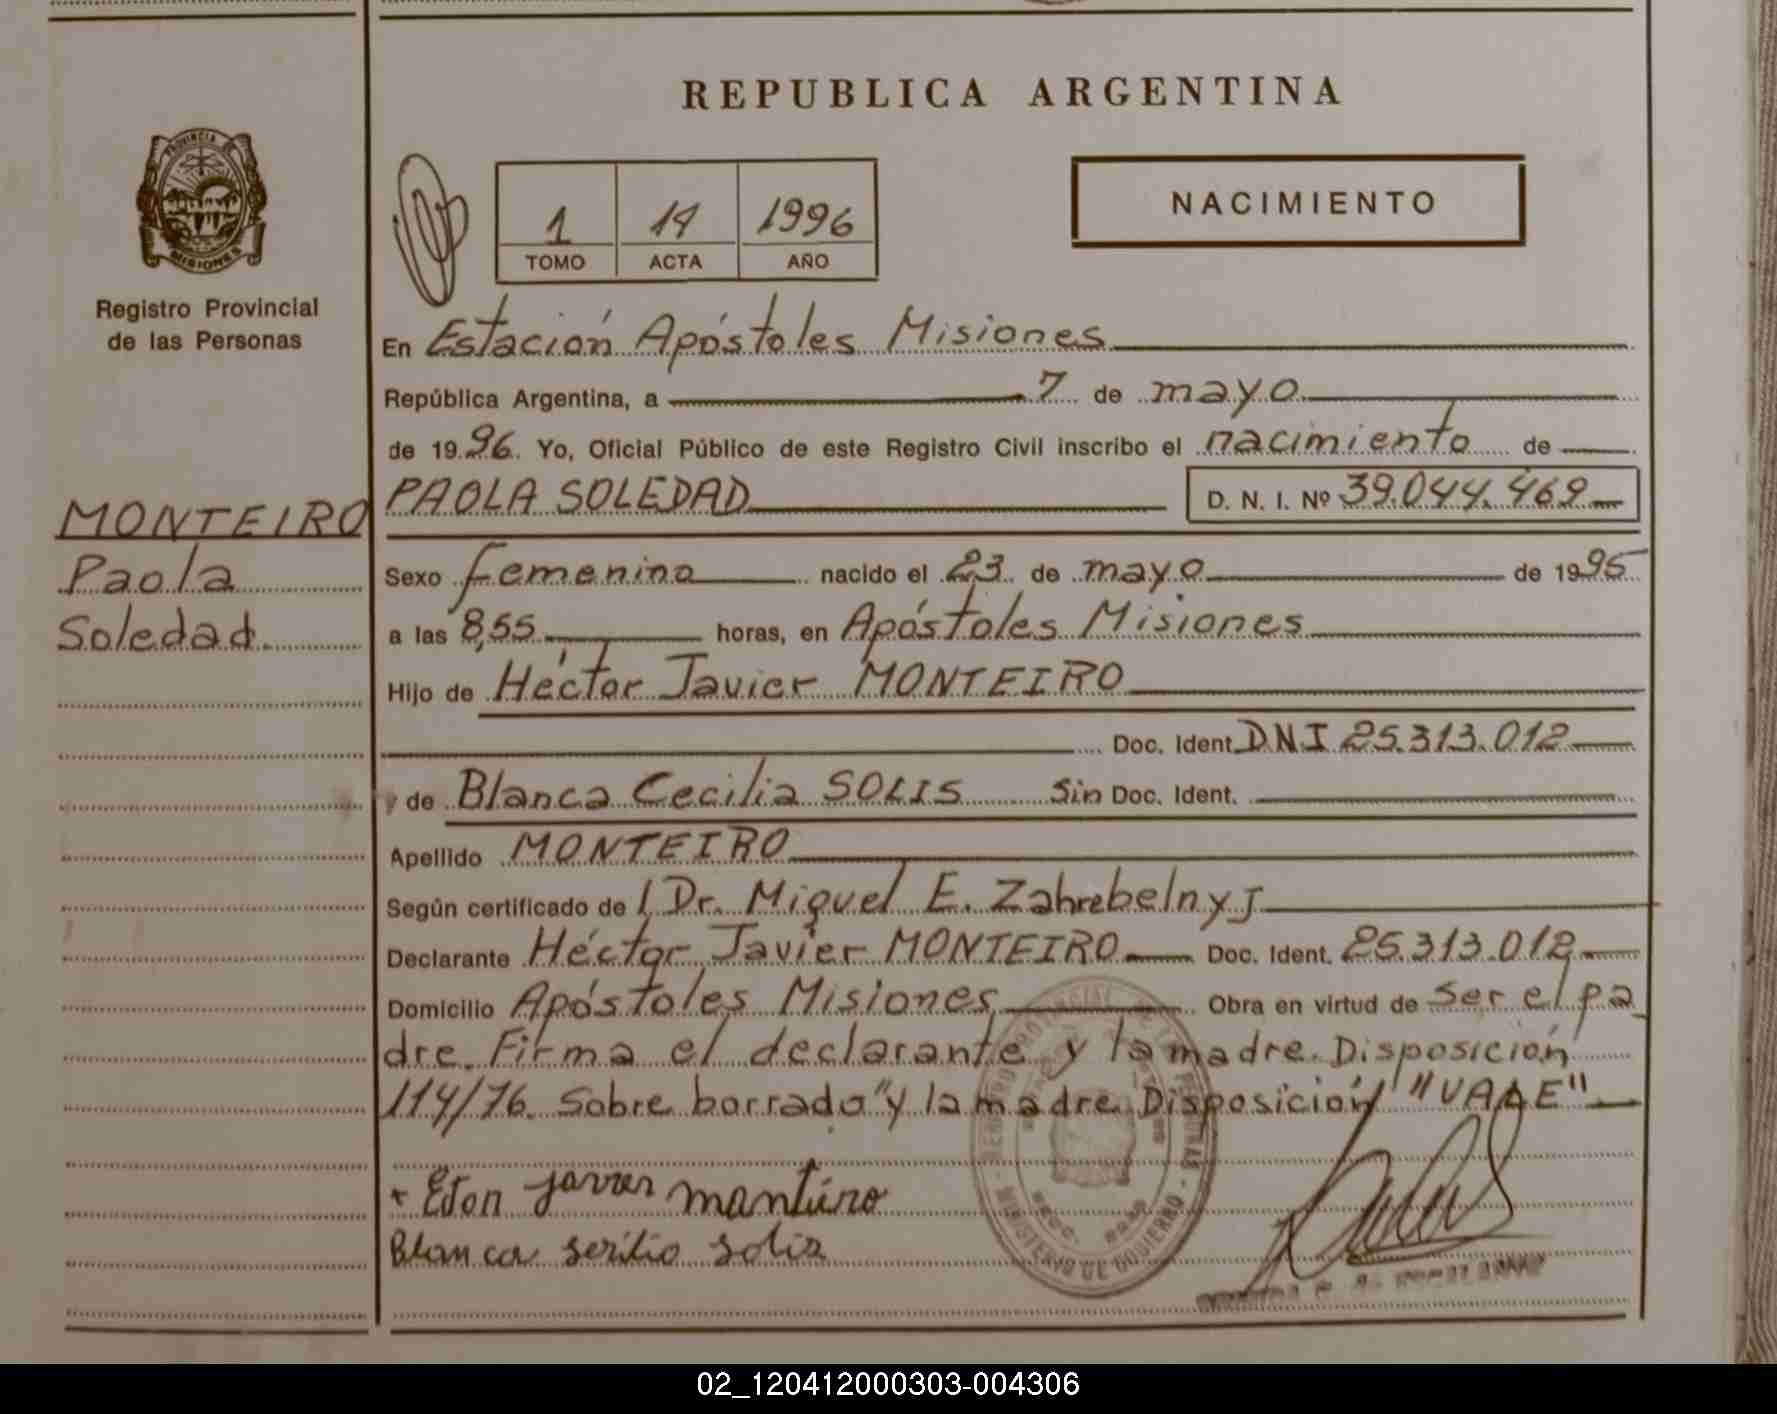 REPUBLICA ARGENTINA
PROVINCIA DE
MISIONES
Registro Provincial
de las Personas
1 14 1996
TOMO ACTA AÑO
NACIMIENTO
En Estación Apóstoles Misiones
República Argentina, a 7 de mayo
de 1996. Yo, Oficial Público de este Registro Civil inscribo el nacimiento de
PAOLA SOLEDAD D. N. I. Nº 39.044.469
MONTEIRO
Paola
Soledad
Sexo femenino nacido el 23 de mayo de 1995
a las 8,55 horas, en Apóstoles Misiones
Hijo de Héctor Javier MONTEIRO
Doc. Ident. DNI 25.313.012
y de Blanca Cecilia SOLIS Sin Doc. Ident.
Apellido MONTEIRO
Según certificado de Dr. Miguel E. Zahrebelnyj
Declarante Héctor Javier MONTEIRO Doc. Ident. 25.313.012
Domicilio Apóstoles Misiones Obra en virtud de ser el pa
dre. Firma el declarante y la madre. Disposición
114/76. Sobre borrado "y la madre. Disposición" "VALE"
Blanca
MINISTERIO DE GOBIERNO
02_120412000303-004306